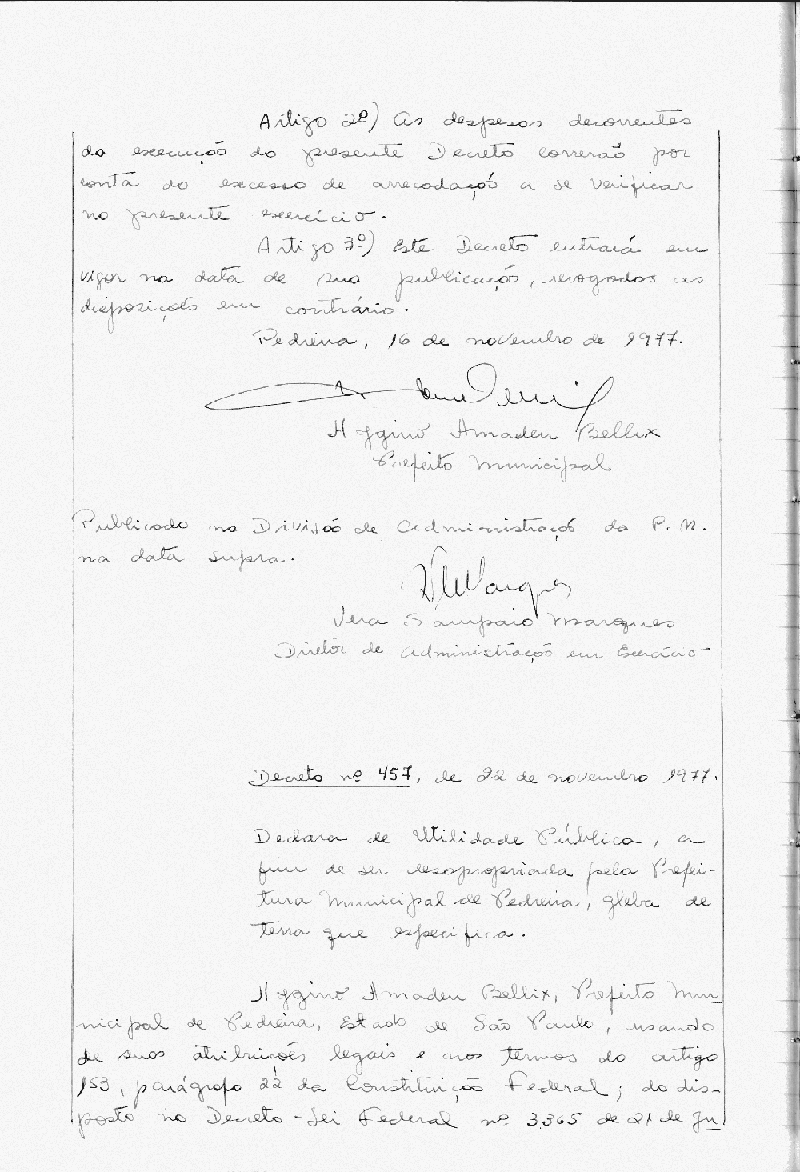 Artigo 2º) As despesas decorrentes
da execução do presente Decreto correrão por
conta do excesso de arrecadação a se verificar
no presente exercício.
Artigo 3º) Este Decreto entrará em
vigor na data de sua publicação, revogadas as
disposições em contrário.
Pedreira, 16 de novembro de 1977.
Hygino Amadeu Bellix
Prefeito Municipal
Publicado na Divisão de Administração da P. M.
na data supra.
Vera Sampaio Marques
Diretor de Administração em Exercício
Decreto nº 457, de 22 de novembro 1977.
Declara de Utilidade Pública, a-
fim de ser desapropriada pela Prefei-
tura Municipal de Pedreira, gleba de
terra que especifica.
Hygino Amadeu Bellix, Prefeito Mu
nicipal de Pedreira, Estado de São Paulo, usando
de suas atribuições legais e nos termos do artigo
153, parágrafo 22 da Constituição Federal; do dis-
posto no Decreto-Lei Federal nº 3.365 de 21 de Ju